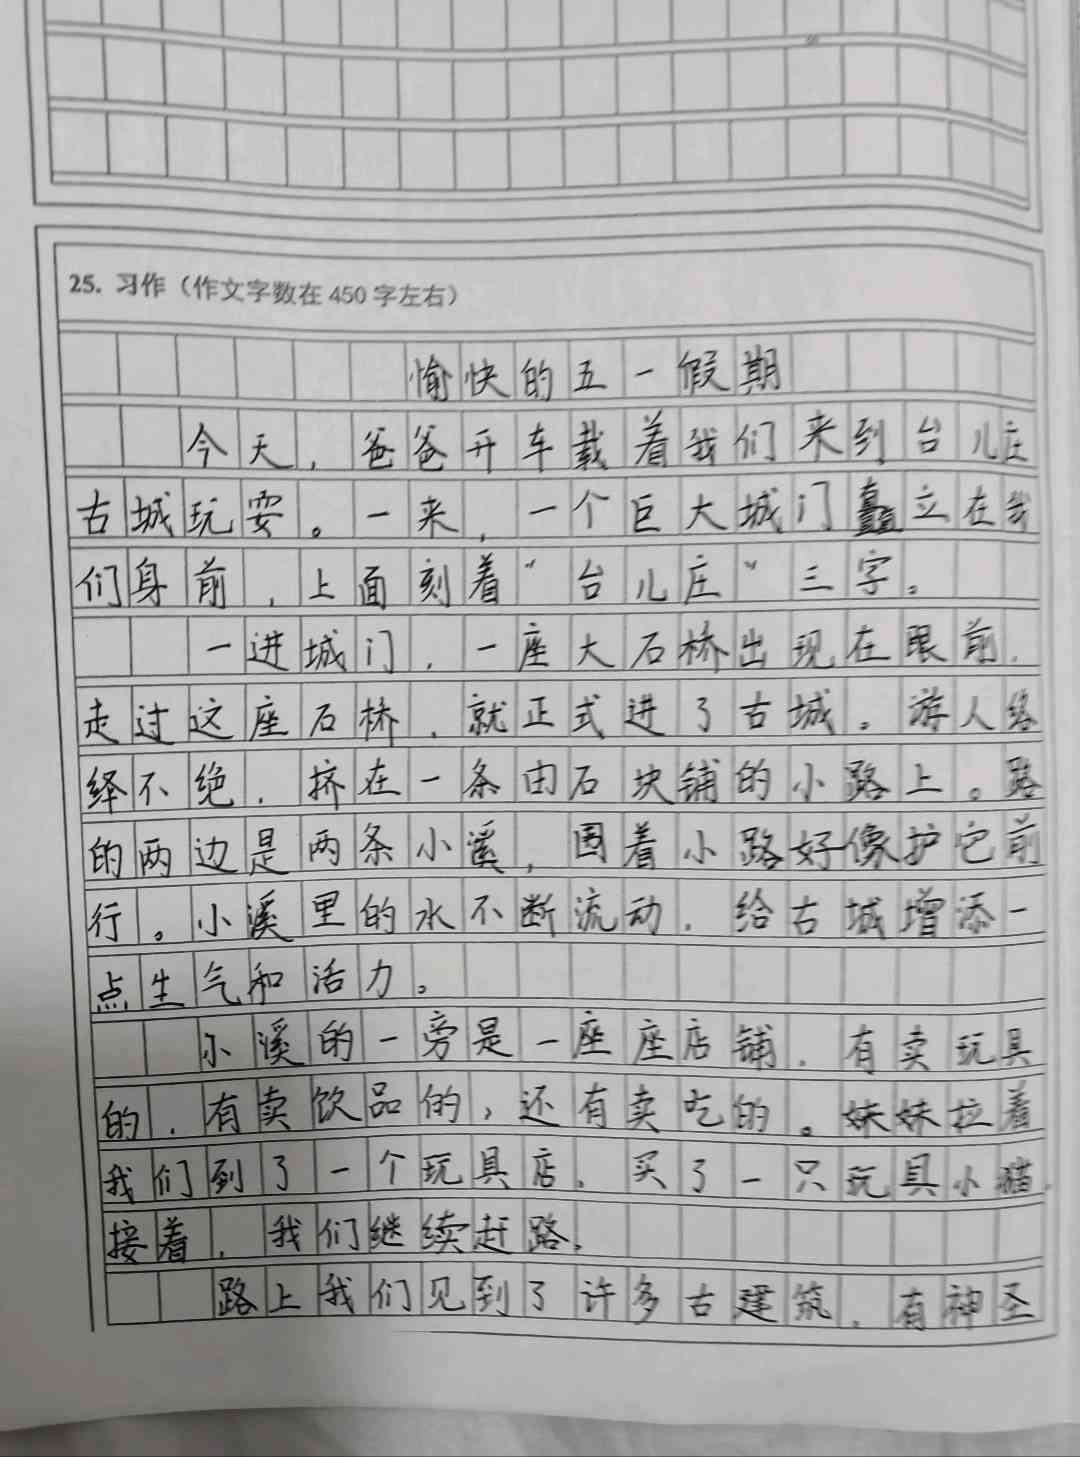 25. 习作（作文字数在450字左右）
愉快的五一假期
今天，爸爸开车载着我们来到台儿庄
古城玩耍。一来，一个巨大城门矗立在我
们身前，上面刻着“台儿庄”三字。
一进城门，一座大石桥出现在眼前，
走过这座石桥，就正式进了古城。游人络
绎不绝，挤在一条由石块铺的小路上。路
的两边是两条小溪，围着小路好像护它前
行。小溪里的水不断流动，给古城增添一
点生气和活力。
小溪的一旁是一座座店铺，有卖玩具
的，有卖饮品的，还有卖吃的。妹妹拉着
我们到了一个玩具店，买了一只玩具小猫，
接着，我们继续赶路。
路上我们见到了许多古建筑，有神圣